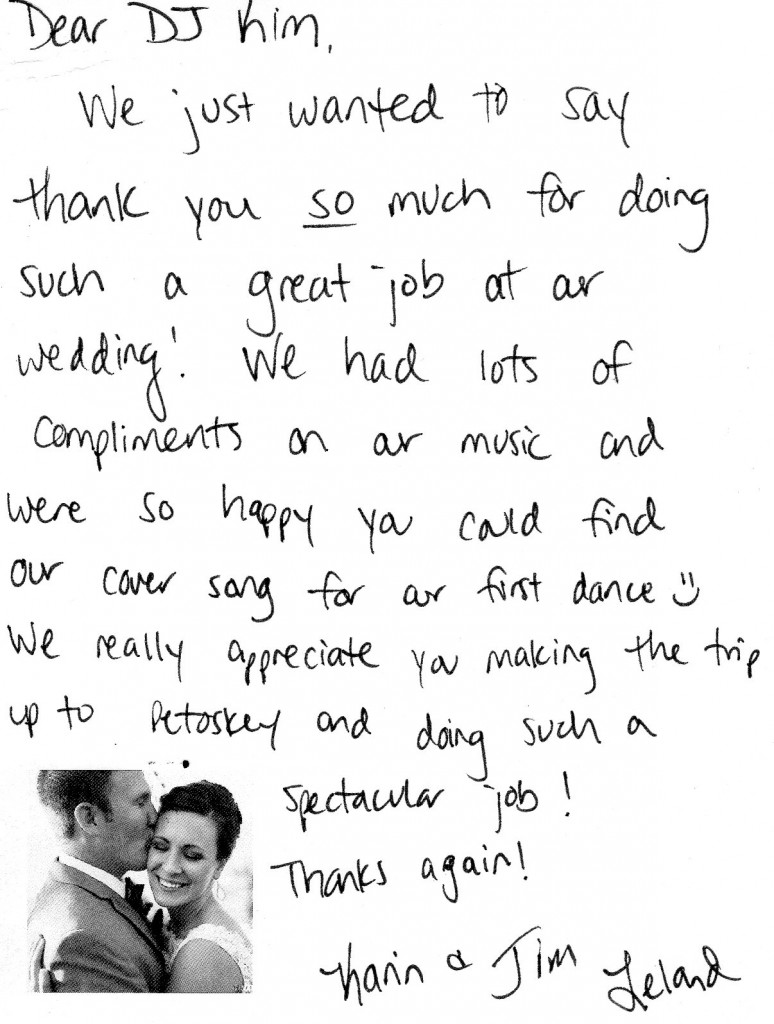 Dear DJ Kim,
We just wanted to say
thank you so much for doing
such a great job at our
wedding! We had lots of
compliments on our music and
were so happy you could find
our cover song for our first dance :)
We really appreciate you making the trip
up to Petoskey and doing such a
spectacular job!
Thanks again!
Karin & Jim Leland